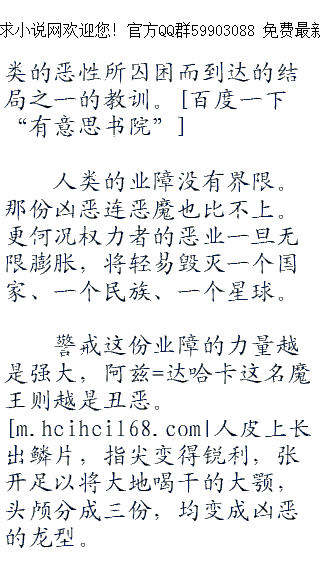 求小说网欢迎您！官方QQ群59903088 免费最新
类的恶性所囚困而到达的结
局之一的教训。[百度一下
“有意思书院”]
人类的业障没有界限。
那份凶恶连恶魔也比不上。
更何况权力者的恶业一旦无
限膨胀，将轻易毁灭一个国
家、一个民族、一个星球。
警戒这份业障的力量越
是强大，阿兹=达哈卡这名魔
王则越是丑恶。
[m.hcihci168.com|人皮上长
出鳞片，指尖变得锐利，张
开足以将大地喝干的大颚，
头颅分成三份，均变成凶恶
的龙型。